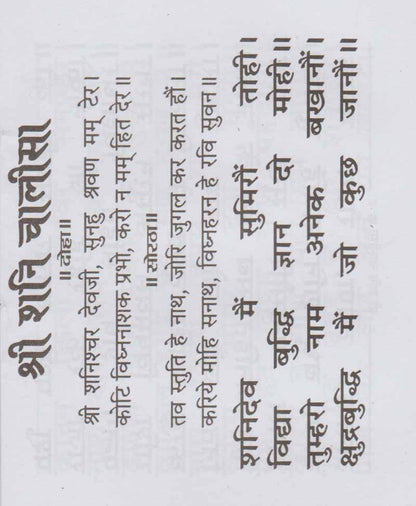 श्री शनि चालीसा
॥दोहा॥
श्री शनिश्चर देवजी, सुनहु श्रवण मम् टेर।
कोटि विघ्ननाशक प्रभो, करो न मम् हित देर॥
॥सोरठा॥
तव स्तुति हे नाथ, जोरि जुगल कर करत हौं।
करिये मोहि सनाथ, विघ्नहरन हे रवि सुवन॥
शनिदेव मैं सुमिरौं तोही।
विद्या बुद्धि ज्ञान दो मोही॥
तुम्हरो नाम अनेक बखानौं।
क्षुद्रबुद्धि मैं जो कुछ जानौं॥